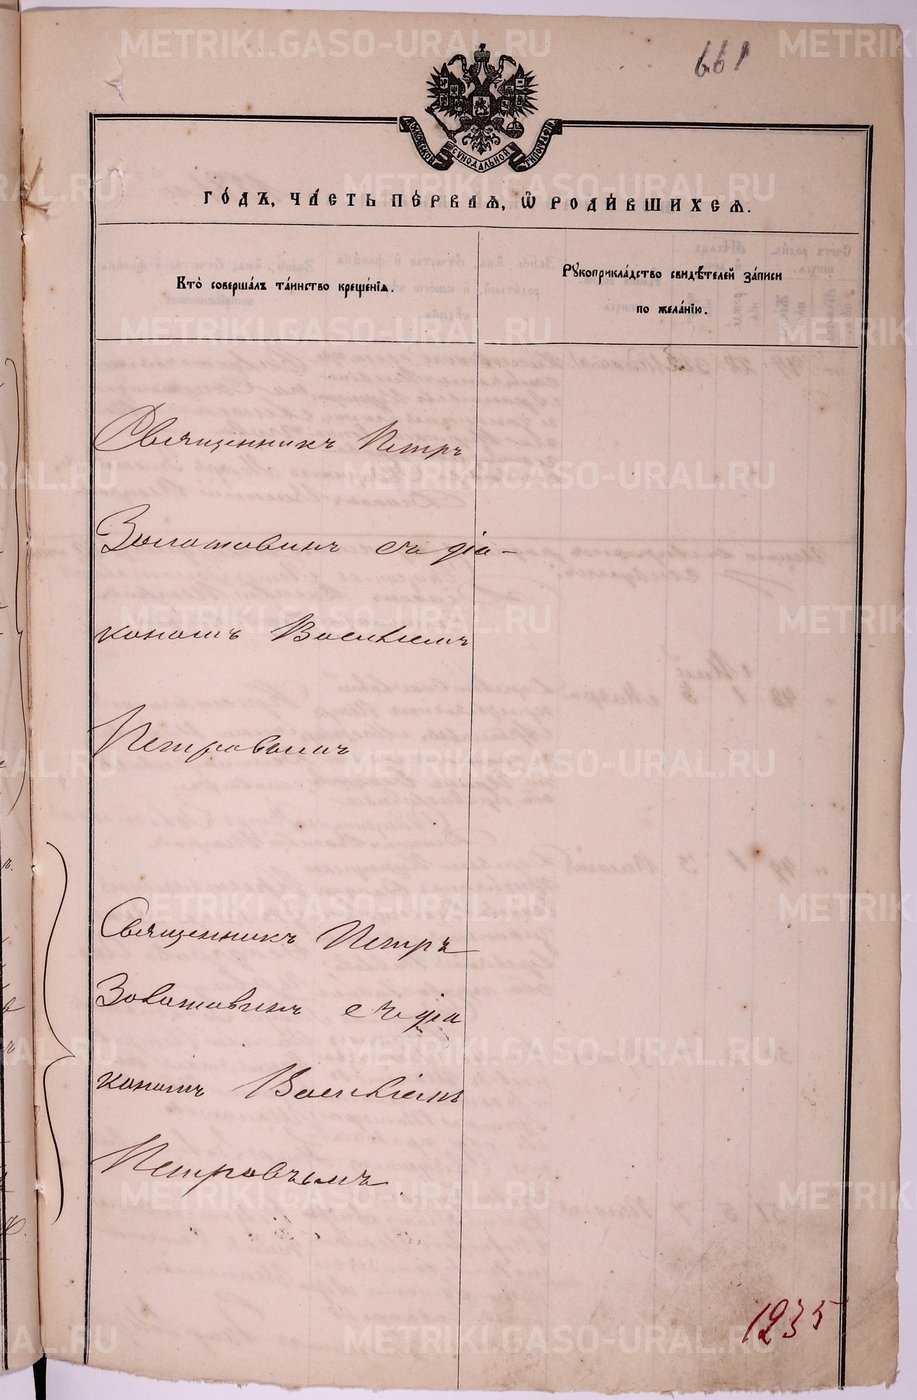 661
МОСКОВСКОЙ СѴНОДАЛЬНОЙ ТИПОГРАФІИ
ГО́ДЪ, ЧА́СТЬ ПЕ́РВАѦ, Ѽ РОДИ́ВШИХСѦ.
Кто̀ соверша́лъ та́инство креще́нїѧ.
Рꙋкоприкла́дство свидѣ́телей за́писи
по жела́нїю.
Священникъ Петръ
Золотовинъ съ діа-
кономъ Василіемъ
Петровымъ
Священникъ Петръ
Золотовинъ съ діа
кономъ Василіемъ
Петровымъ.
1235
METRIKI.GASO-URAL.RU